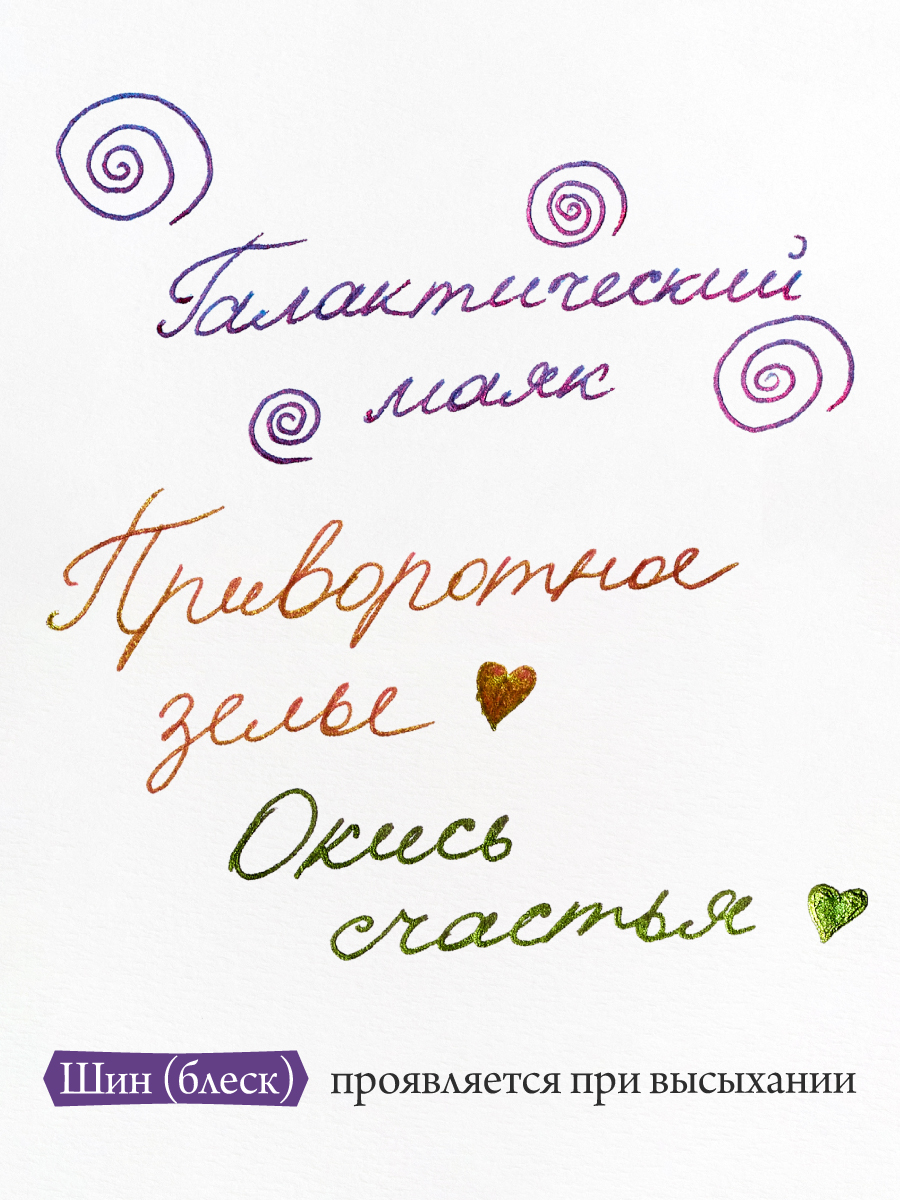 Галактический
маяк
Приворотное
зелье
Окись
счастья
Шин (блеск) проявляется при высыхании